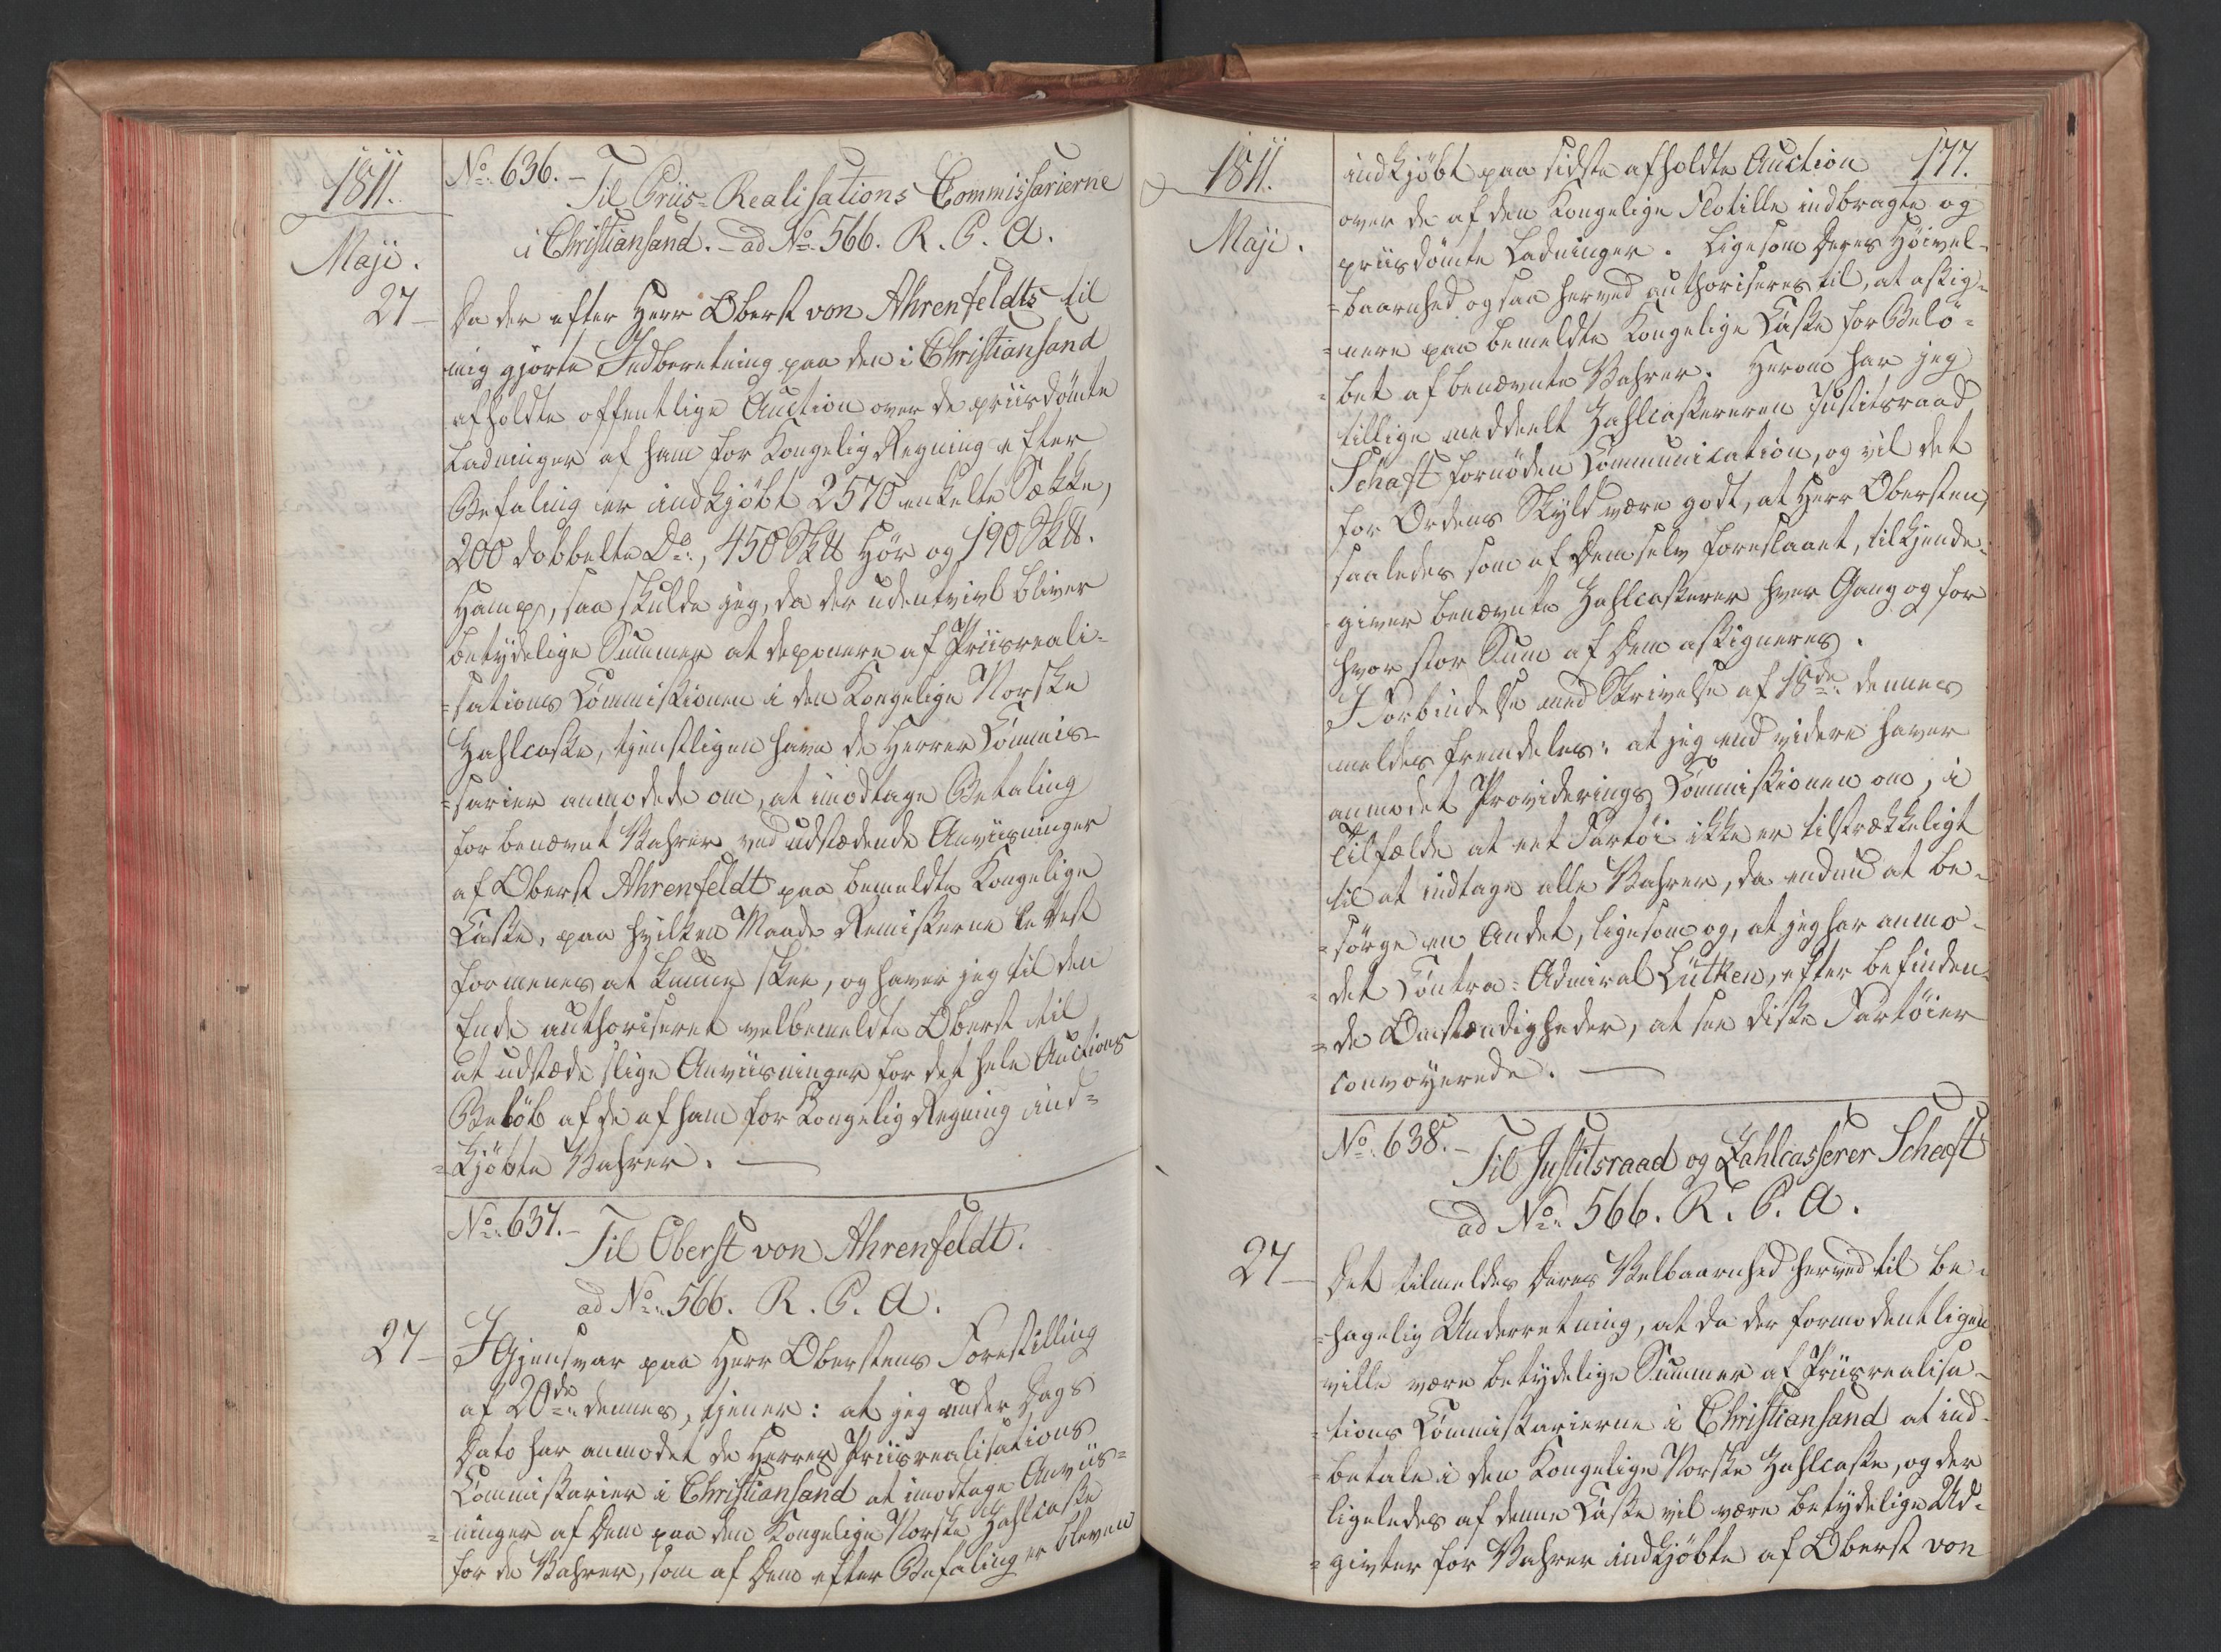 1811.
Maji.
No. 636. –
Til Priis-Realisations Commissarierne
i Christiansand. – ad No. 566. R. P. A.
27 – Da der efter Herr Oberst von Ahrenfeldts til
mig gjorte Indberetning paa den i Christiansand
afholdte offentlige Auction over de priisdömte
Ladninger af ham for Kongelig Regning efter
Befaling er indkjöbt 2570 enkelte Sække,
200 dobbelte Do., 450 Skll Hör og 190 Skll.
Hamp, saa skulde jeg, da der udentvivl bliver
betydelige Summer at deponere af Priisreali-
=sations Commissionen i den Kongelige Norske
Zahlcasse, tjenstligen have de Herrer Commis-
=sarier anmodede om, at imodtage Betaling
for benævnt Vahrer ved udstædende Anviisninger
af Oberst Ahrenfeldt paa bemeldte Kongelige
Casse, paa hvilken Maade Remisserne lettest
formenes at kunne skee, og haver jeg til den
Ende authoriseret velbemeldte Oberst til
at udstæde slige Anviisninger for det hele Auctions
Belöb af de af ham for Kongelig Regning ind=
=kjöbte Vahrer. —
No. 637. –
Til Oberst von Ahrenfeldt.
ad No. 566. R. P. A.
27 – I Gjensvar paa Herr Oberstens Forestilling
af 20de dennes, tjener: at jeg under Dags
Dato har anmodet de Herrer Priisrealisations
Commissarier i Christiansand at imodtage Anviis=
=ninger af Dem paa den Kongelige Norske Zahlcasse
for de Vahrer, som af Dem efter Befaling er bleven
1811.
Maji.
177.
indkjöbt paa sidste afholdte Auction
over de af den Kongelige Flotille indbragte og
priisdömte Ladninger. Ligesom Deres Höivel-
=baarnhed ogsaa herved authoriseres til, at assig-
=nere paa bemeldte Kongelige Casse for Belö=
=bet af benævnte Vahrer. Herom har jeg
tillige meddeelt Zahlcassereren Justitsraad
Schaft fornöden Communication, og vil det
for Ordens Skyld være godt, at Herr Obersten,
saaledes som af Dem selv foreslaaet, tilkjende-
=giver benævnte Zahlcasserer hver Gang og for
hvor stor Sum af Dem assigneres.
I Forbindelse med Skrivelse af 18de dennes
meldes fremdeles: at jeg end videre haver
anmodet Providerings Commissionen om, i
Tilfælde at eet Fartöi ikke er tilstrækkeligt
til at indtage alle Vahrer, da endnu at be-
=sörge en Andet, ligesom og, at jeg har anmo-
=det Contra-Admiral Lütken, efter befinden-
=de Omstændigheder, at see disse Fartöier
convoyerede. —
No. 638. –
Til Justitsraad og Zahlcasserer Schaft
ad No. 566. R. P. A.
27 – Det tilmeldes Deres Velbaarnhed herved til be-
=hagelig Underretning, at da der formodentligen
ville være betydelige Summer af Priisrealisa-
=tions Commissarierne i Christiansand at ind-
=betale i den Kongelige Norske Zahlcasse, og der
ligeledes af denne Casse vil være betydelige Ud-
=givter for Vahrer indkjöbte af Oberst von